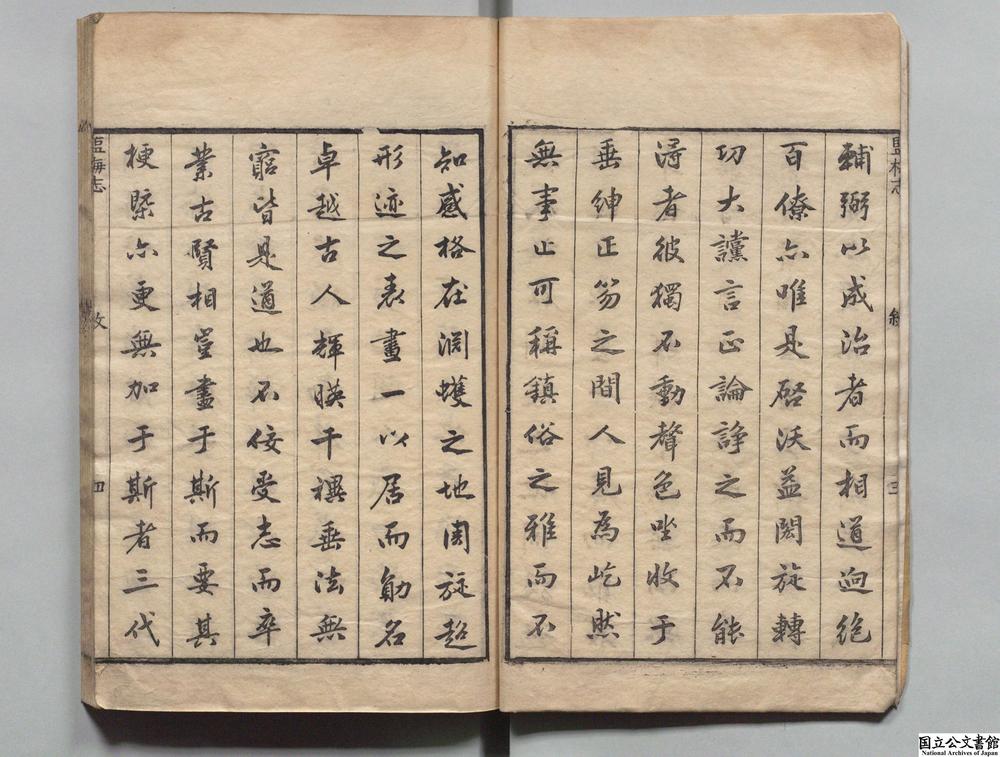 輔弼以成治者而相道迥絶
百僚亦唯是啓沃益闕旋轉
功大讜言正論諍之而不能
淂者彼獨不動聲色坐收于
垂紳正笏之間人見為屹然
無事止可稱鎮俗之雅而不
知感格在淵蠖之地周旋超
形迹之表畫一以居而勛名
卓越古人輝暎千禩垂法無
窮皆是道也不佞受志而卒
業古賢相豈盡于斯而要其
梗槩亦更無加于斯者三代
三
四
国立公文書館
National Archives of Japan